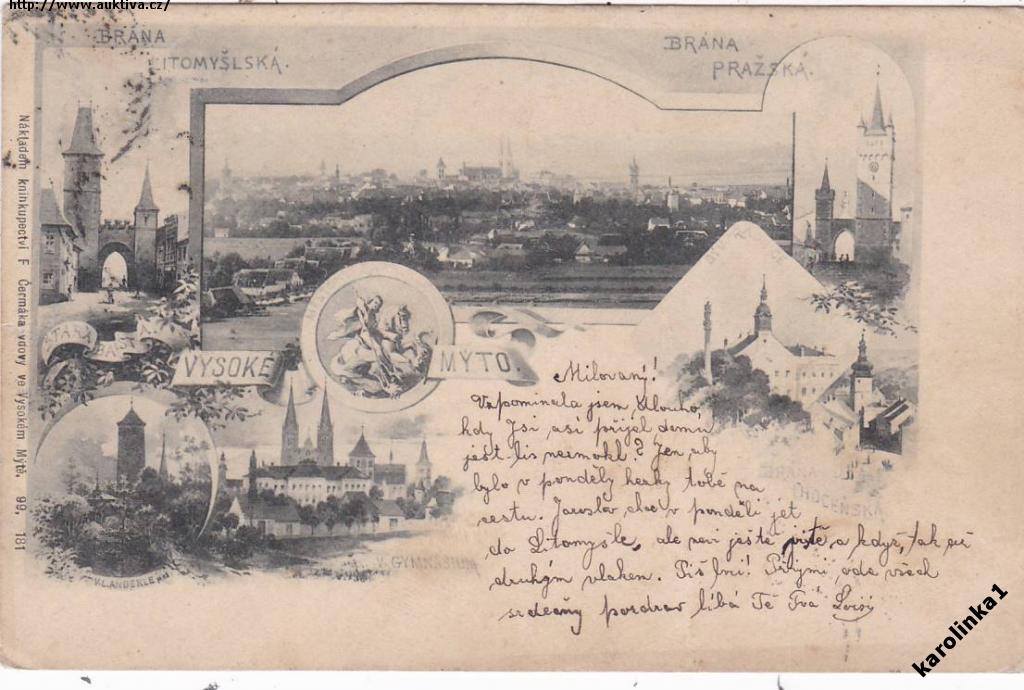 http://www.auktiva.cz/
BRÁNA
LITOMYŠLSKÁ.
BRÁNA
PRAŽSKÁ.
Nákladem knihkupectví F. Čermáka vdovy ve Vysokém Mýtě. 99. 181
VYSOKÉ
MÝTO.
BRÁNA
CHOCEŇSKÁ
V. GYMNASIUM
V.L. ANDERLE
Milovaný!
Vzpomínala jsem dlouho,
kdy Jsi asi přijel domů
jest-lis nezmokl? Jen aby
bylo v ponděly hezky tobě na
cestu. Jaroslav chce v ponděli jét
do Litomyšle, ale neví ještě jistě a když, tak až
druhým vlakem. Piš mi! Přijmi ode všech
srdečný pozdrav líbá Tě Tvá
karolinka1